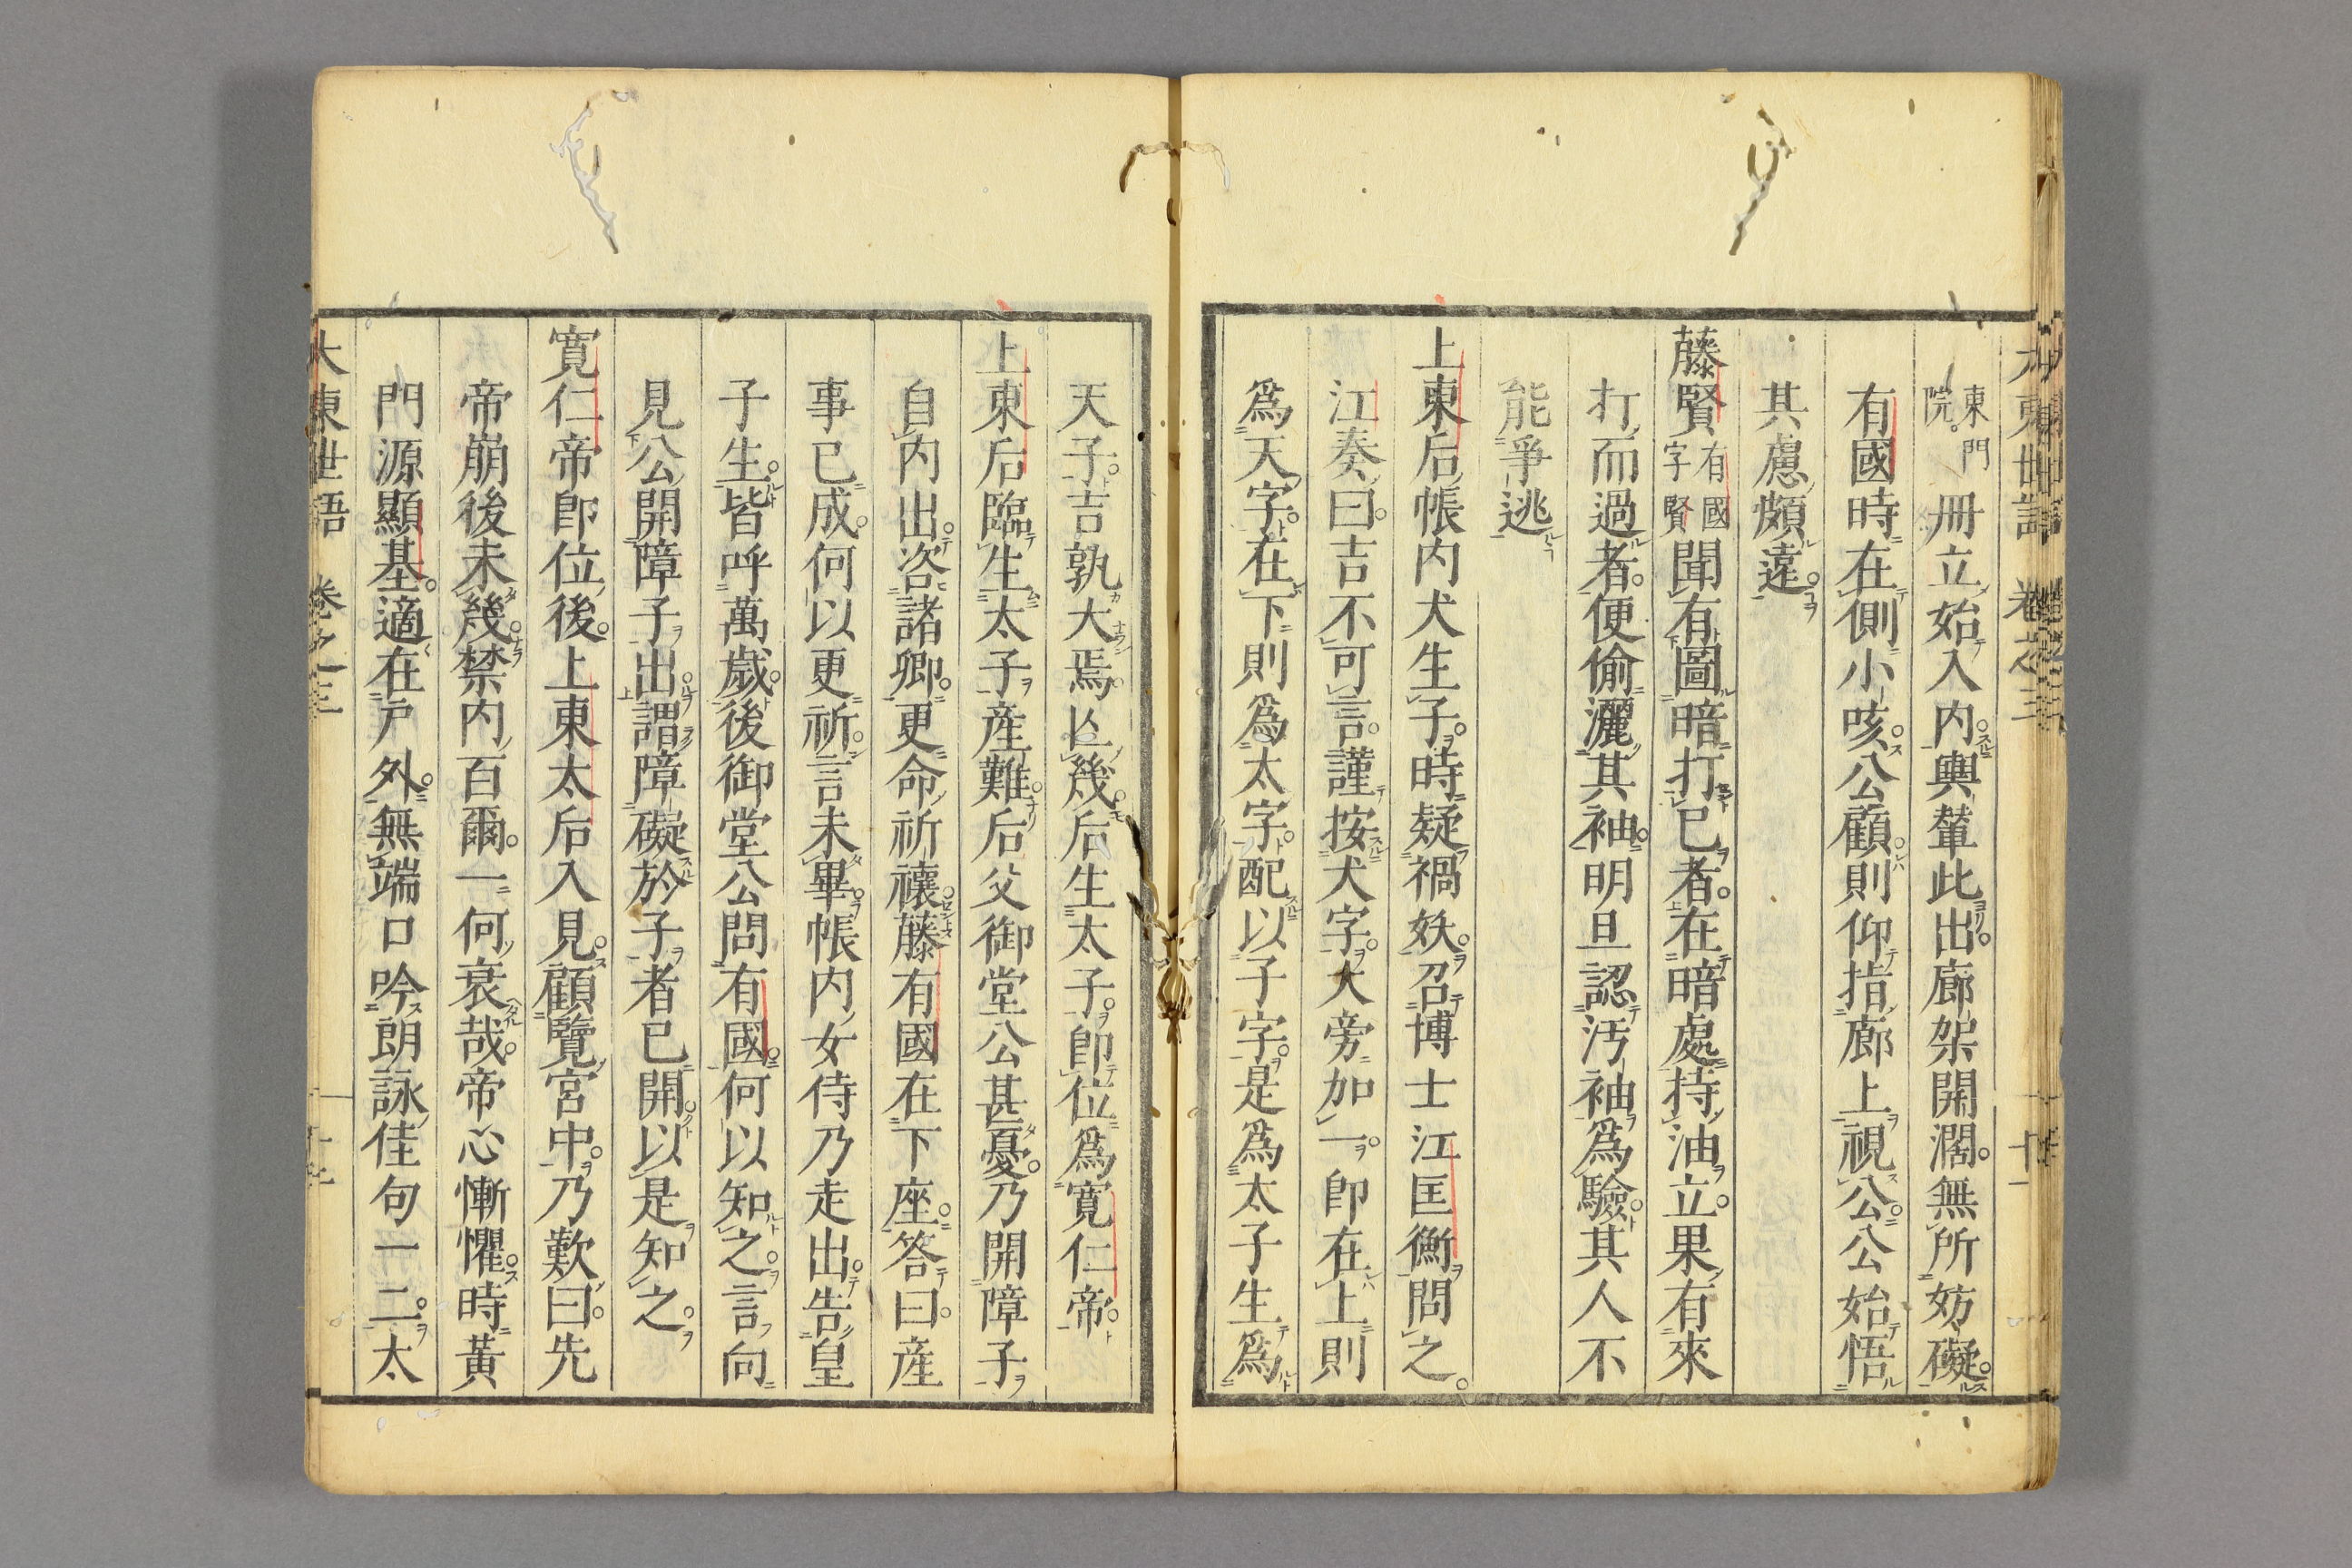 大東世語 卷之三 十一
東門院。冊立始入内。輿輦此出。廊架開濶。無所妨礙。
有國時在側小咳。公顧則仰指廊上視公。公始悟
其慮頗遠。
藤賢有國字賢聞有圖暗打已者。在暗處持油立。果有來
打而過者。便偷灑其袖。明旦認汚袖為驗。其人不
能爭逃
上東后帳内犬生子。時疑禍妖。召博士江匡衡問之。
江奏曰。吉不可言。謹按犬字。大旁加一。即在上則
爲天字。在下則爲太字。配以子字。是爲太子生爲
天子。吉孰大焉。亾幾后生太子。即位爲寬仁帝。
上東后臨生太子産難。后父御堂公甚憂。乃開障子
自内出。咨諸卿。更命祈禳。藤有國在下座。答曰。産
事已成。何以更祈。言未畢。帳内女侍乃走出。告皇
子生。皆呼萬歲。後御堂公問有國。何以知之。言向
見公開障子出。謂障礙於子者已開。以是知之。
寬仁帝即位後。上東太后入見。顧覽宮中。乃歎曰。先
帝崩後未幾。禁内百爾。一何衰哉。帝心慚懼。時黃
門源顯基。適在戶外。無端口吟朗詠佳句一二。太
大東世語 卷之三